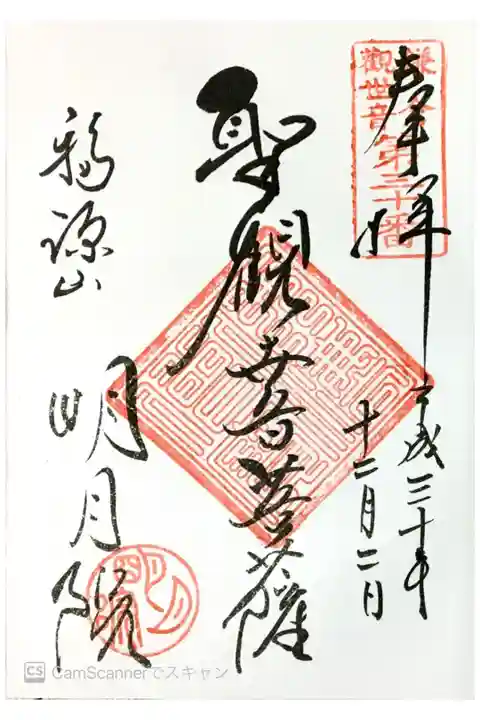 奉拝
鎌倉
觀世音
第三十番
平成三十年
十二月二日
聖観世音菩薩
福源山
明月院
CS CamScannerでスキャン